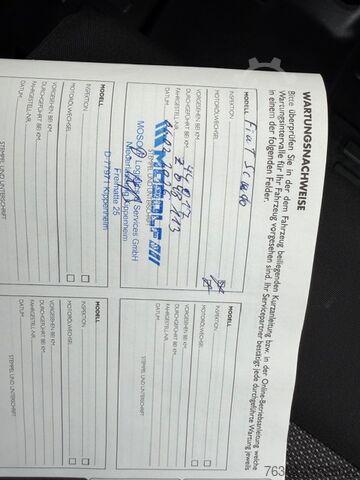 WARTUNGSNACHWEISE
Bitte überprüfen Sie in der dem Fahrzeug beiliegenden Kurzanleitung bzw. in der Online-Betriebsanleitung welche
Wartungsintervalle für Ihr Fahrzeug vorgesehen sind. Ihr Servicepartner bestätigt jede durchgeführte Wartung jeweils
in einem der folgenden Felder.
MODELL Fiat Scudo
INSPEKTION
MOTORÖLWECHSEL
VORGESEHEN BEI KM
DURCHGEFÜHRT BEI KM
FAHRGESTELL-NR.
DATUM
STEMPEL UND UNTERSCHRIFT
MOSOLF
MOSOLF Logistics & Services GmbH
Niederlassung Kippenheim
Freimatte 25
D-77971 Kippenheim
MODELL
INSPEKTION
MOTORÖLWECHSEL
VORGESEHEN BEI KM
DURCHGEFÜHRT BEI KM
FAHRGESTELL-NR.
DATUM
STEMPEL UND UNTERSCHRIFT
MODELL
INSPEKTION
MOTORÖLWECHSEL
VORGESEHEN BEI KM
DURCHGEFÜHRT BEI KM
FAHRGESTELL-NR.
DATUM
STEMPEL UND UNTERSCHRIFT
MODELL
INSPEKTION
MOTORÖLWECHSEL
VORGESEHEN BEI KM
DURCHGEFÜHRT BEI KM
FAHRGESTELL-NR.
STEMPEL UND UNTERSCHRIFT
763